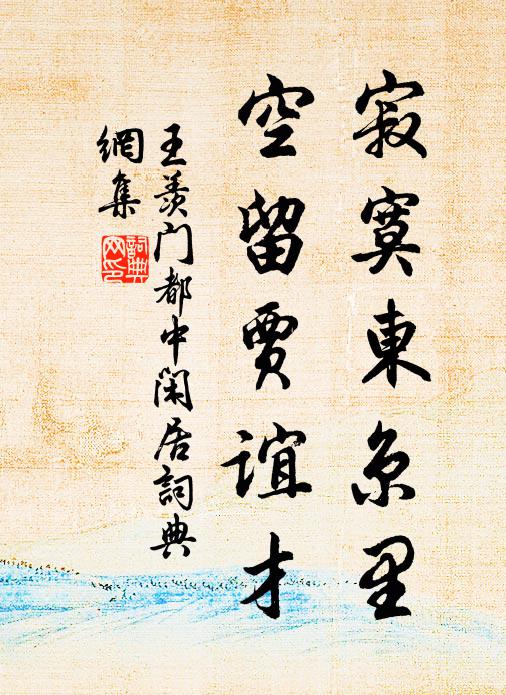 寂寞東京里
空留賈誼才
王羨门都中閑居詞典
網集
詞典网印